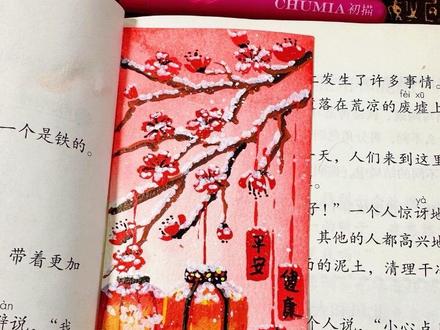 CHUMIA 初描
一个是铁的。
带着更加
平安
健康
发生了许多事情。
fèi xū
落在荒凉的废墟上
天，人们来到这里
yà
子！”一个人惊讶地
其他的人都高兴地
的泥土，清理干
个人说，“小心点
说，“我